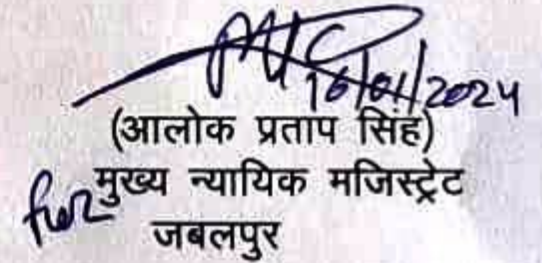 16/01/2024
(आलोक प्रताप सिंह)
for मुख्य न्यायिक मजिस्ट्रेट
जबलपुर